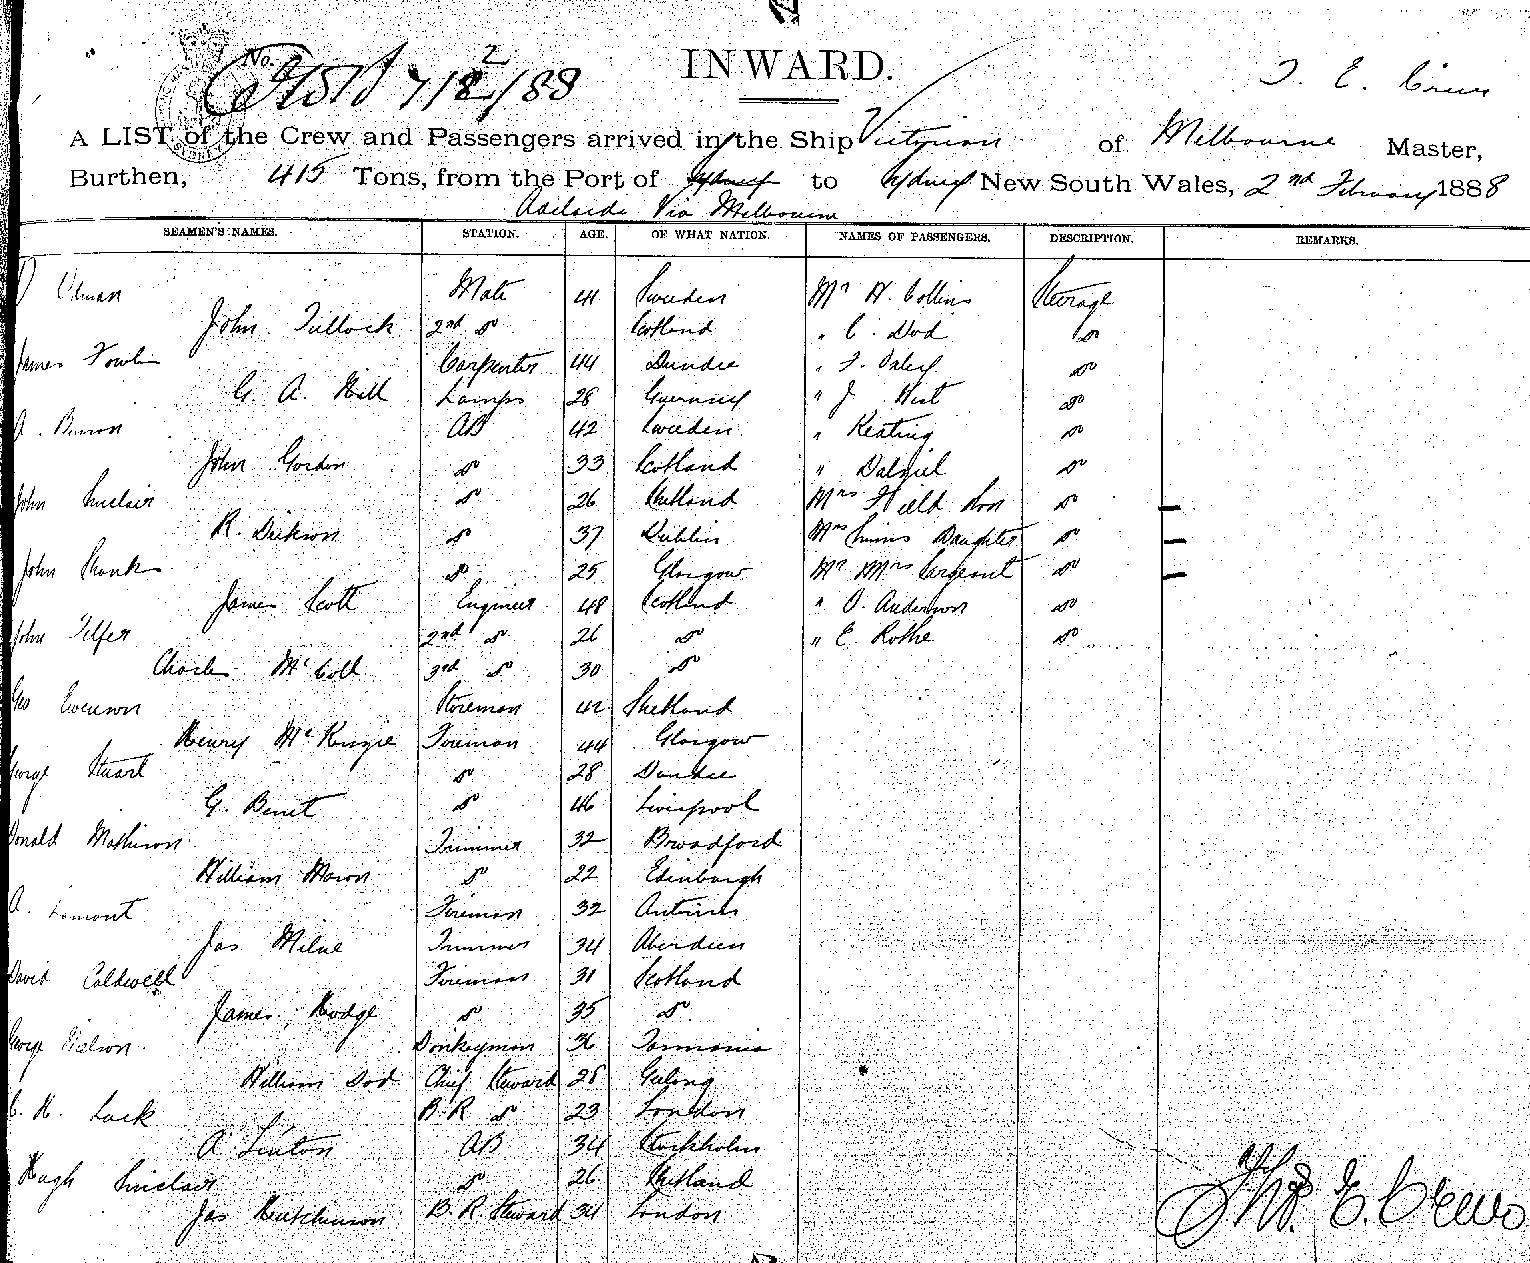 No.
7/2/88
INWARD.
T. E. Crews
A LIST of the Crew and Passengers arrived in the Ship Victorian of Melbourne Master,
Burthen, 415 Tons, from the Port of Sydney to Sydney New South Wales, 2nd February 1888
Adelaide Via Melbourne
SEAMEN'S NAMES. STATION. AGE. OF WHAT NATION. NAMES OF PASSENGERS. DESCRIPTION. REMARKS.
Mate 41 Sweden Mr W. Collins Steerage
John Tullock 2nd do Scotland " C. Dod do
James Carpenter 44 Dundee " do
G. A. Hill Lamps 28 Guernsey " J. do
AB 42 Sweden " Keating do
John Gordon do 33 Scotland " Dalziel do
John Sinclair do 26 Shetland Mrs Field Son do
R. Dickson do 37 Dublin Mrs Daughter do
John do 25 Glasgow Mr Mrs Sargeant do
James Scott Engineer 48 Scotland " O. Anderson do
John Telfer 2nd do 26 do " E. Rothe do
Charles McColl 3rd do 30 do
Geo Storeman 42 Shetland
Henry McKenzie Fireman 44 Glasgow
George Stuart do 28 Dundee
G. Benet do 46 Liverpool
Donald Mathieson Trimmer 32 Broadford
William Mason do 22 Edinburgh
A. Lamont Fireman 32 Antrim
Jas Milne Trimmer 34 Aberdeen
David Caldwell Fireman 31 Scotland
James Hodge do 35 do
George Donkeyman 36 Tasmania
William Dod Chief Steward 28 Geelong
C. H. Lack B. R. do 23 London
A Linton AB 34 Stockholm
Hugh Sinclair do 26 Shetland
Jas Hutchinson B. R. Steward 31 London
Thos. E. Crews